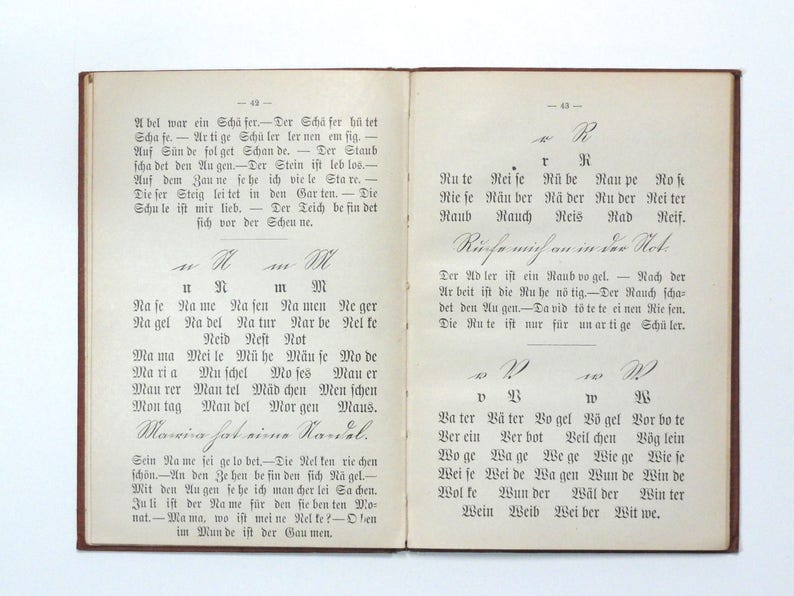 — 42 —
A bel war ein Schä fer.—Der Schä fer hü tet
Scha fe. — Ar ti ge Schü ler ler nen em sig. —
Auf Sün de fol get Schan de. — Der Staub
scha det den Au gen.—Der Stein ist leb los.—
Auf dem Zau ne se he ich vie le Sta re. —
Die ser Steig lei tet in den Gar ten. — Die
Schu le ist mir lieb. — Der Teich be fin det
sich vor der Scheu ne.
n N m M
n N m M
Na se Na me Na sen Na men Ne ger
Na gel Na del Na tur Nar be Nel ke
Neid Nest Not
Ma ma Mei le Mü he Mäu se Mo de
Ma ri a Mu schel Mo ses Mau er
Mau rer Man tel Mäd chen Men schen
Mon tag Man del Mor gen Maus.
Maria hat eine Nadel.
Sein Na me sei ge lo bet.—Die Nel ken rie chen
schön.—An den Ze hen be fin den sich Nä gel.—
Mit den Augen se he ich man cher lei Sa chen.
Ju li ist der Na me für den sie ben ten Mo-
nat.—Ma ma, wo ist mei ne Nel ke?—O ben
im Mun de ist der Gau men.
— 43 —
r R
r R
Ru te Rei se Rü be Rau pe Ro se
Rie se Räu ber Rä der Ru der Rei ter
Raub Rauch Reis Rad Reif.
Rufe mich an in der Not.
Der Ad ler ist ein Raub vo gel. — Nach der
Ar beit ist die Ru he nö tig.—Der Rauch scha-
det den Au gen.—Da vid tö te te ei nen Rie sen.
Die Ru te ist nur für un ar ti ge Schü ler.
v V w W
v V w W
Va ter Vä ter Vo gel Vö gel Vor bo te
Ver ein Ver bot Veil chen Vög lein
Wo ge Wa ge We ge Wie ge Wie se
Wei se Wei de Wa gen Wun de Win de
Wol ke Wun der Wäl der Win ter
Wein Weib Wei ber Wit we.